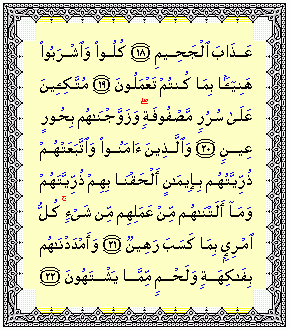 عَذَابَ ٱلْجَحِيمِ ١٨ كُلُوا۟ وَٱشْرَبُوا۟
هَنِيٓـًٔۢا بِمَا كُنتُمْ تَعْمَلُونَ ١٩ مُتَّكِـِٔينَ
عَلَىٰ سُرُرٍ مَّصْفُوفَةٍ ۖ وَزَوَّجْنَـٰهُم بِحُورٍ
عِينٍ ٢٠ وَٱلَّذِينَ ءَامَنُوا۟ وَٱتَّبَعَتْهُمْ
ذُرِّيَّتُهُم بِإِيمَـٰنٍ أَلْحَقْنَا بِهِمْ ذُرِّيَّتَهُمْ
وَمَآ أَلَتْنَـٰهُم مِّنْ عَمَلِهِم مِّن شَىْءٍ ۚ كُلُّ
ٱمْرِئٍۭ بِمَا كَسَبَ رَهِينٌ ٢١ وَأَمْدَدْنَـٰهُم
بِفَـٰكِهَةٍ وَلَحْمٍ مِّمَّا يَشْتَهُونَ ٢٢